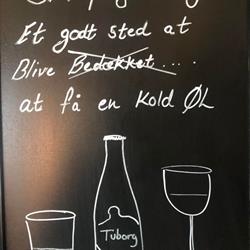 Et godt sted at
Blive Bedækket....
at få en kold ØL
Tuborg